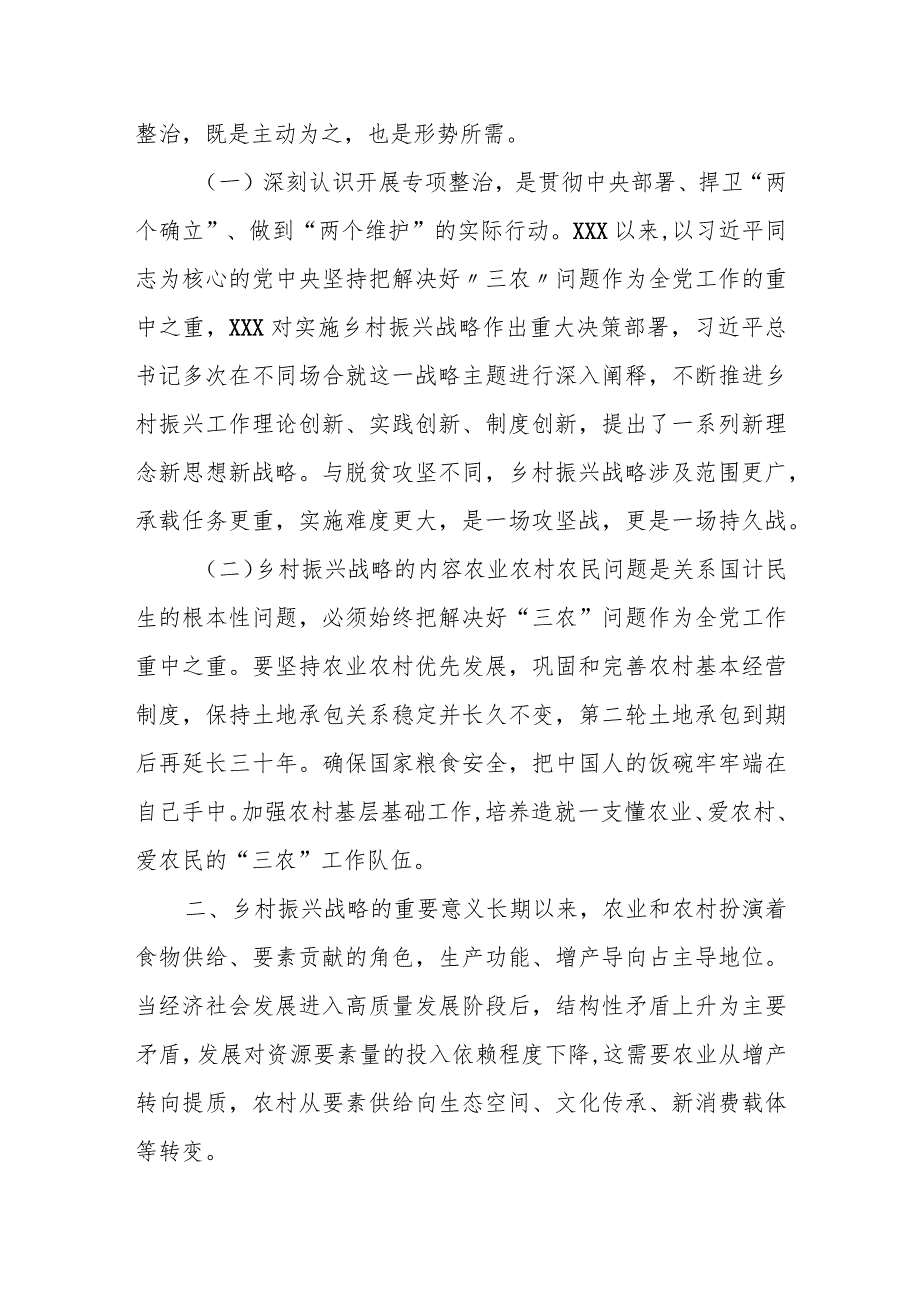 整治，既是主动为之，也是形势所需。
（一）深刻认识开展专项整治，是贯彻中央部署、捍卫“两
个确立”、做到“两个维护”的实际行动。XXX 以来,以习近平同
志为核心的党中央坚持把解决好〃三农〃问题作为全党工作的重
中之重，XXX 对实施乡村振兴战略作出重大决策部署，习近平总
书记多次在不同场合就这一战略主题进行深入阐释，不断推进乡
村振兴工作理论创新、实践创新、制度创新，提出了一系列新理
念新思想新战略。与脱贫攻坚不同，乡村振兴战略涉及范围更广，
承载任务更重，实施难度更大，是一场攻坚战，更是一场持久战。
（二）乡村振兴战略的内容农业农村农民问题是关系国计民
生的根本性问题，必须始终把解决好“三农”问题作为全党工作
重中之重。要坚持农业农村优先发展，巩固和完善农村基本经营
制度，保持土地承包关系稳定并长久不变，第二轮土地承包到期
后再延长三十年。确保国家粮食安全，把中国人的饭碗牢牢端在
自己手中。加强农村基层基础工作,培养造就一支懂农业、爱农村、
爱农民的“三农”工作队伍。
二、乡村振兴战略的重要意义长期以来，农业和农村扮演着
食物供给、要素贡献的角色，生产功能、增产导向占主导地位。
当经济社会发展进入高质量发展阶段后，结构性矛盾上升为主要
矛盾,发展对资源要素量的投入依赖程度下降,这需要农业从增产
转向提质，农村从要素供给向生态空间、文化传承、新消费载体
等转变。